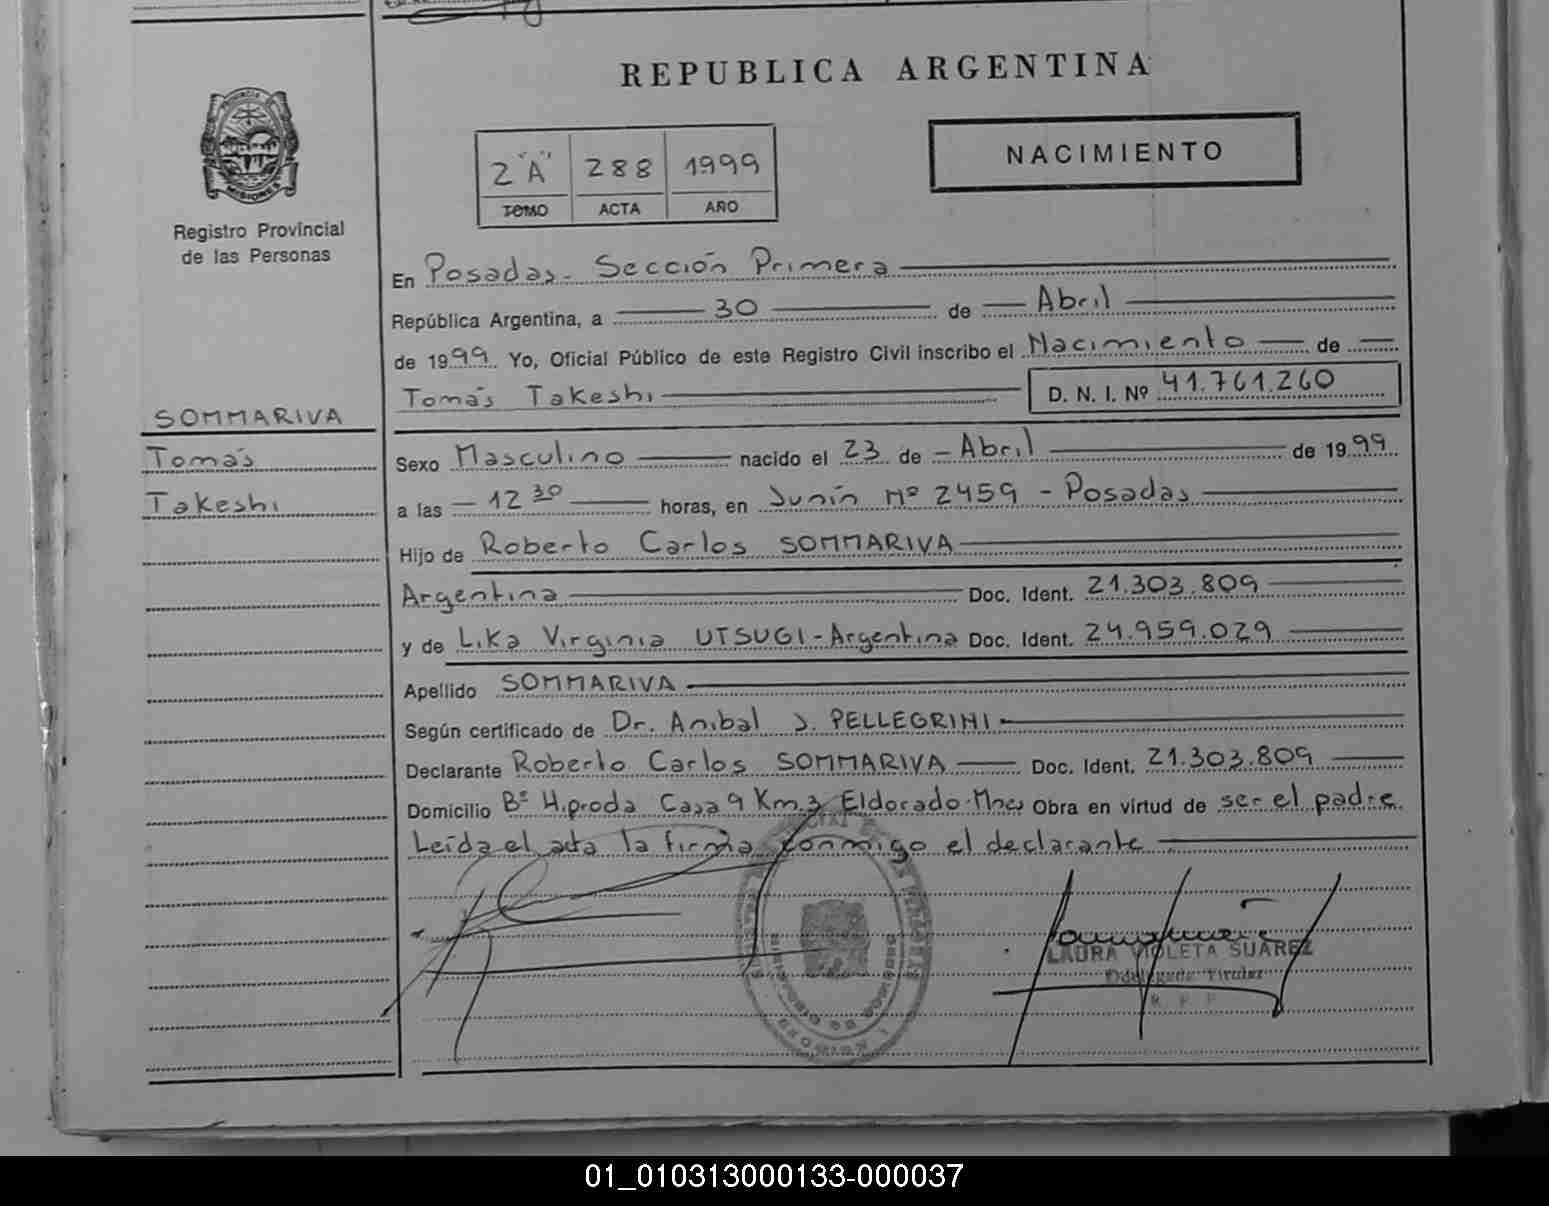 REPUBLICA ARGENTINA
PROVINCIA DE
MISIONES
Registro Provincial
de las Personas
2 "A" 288 1999
TOMO ACTA AÑO
NACIMIENTO
En Posadas - Sección Primera
República Argentina, a 30 de Abril
de 1999 Yo, Oficial Público de este Registro Civil inscribo el Nacimiento de
Tomás Takeshi D. N. I. Nº 41.761.260
SOMMARIVA
Tomás
Takeshi
Sexo Masculino nacido el 23 de Abril de 1999
a las 12 30 horas, en Junín Nº 2459 - Posadas
Hijo de Roberto Carlos SOMMARIVA
Argentina Doc. Ident. 21.303.809
y de Lika Virginia UTSUGI - Argentina Doc. Ident. 24.959.029
Apellido SOMMARIVA
Según certificado de Dr. Anibal J. PELLEGRINI
Declarante Roberto Carlos SOMMARIVA Doc. Ident. 21.303.809
Domicilio Bº Hiproda Casa 9 Km. 3 Eldorado - Mnes Obra en virtud de ser el padre
Leída el acta la firma conmigo el declarante
LAURA VIOLETA SUAREZ
Titular
R. P. P.
01_010313000133-000037